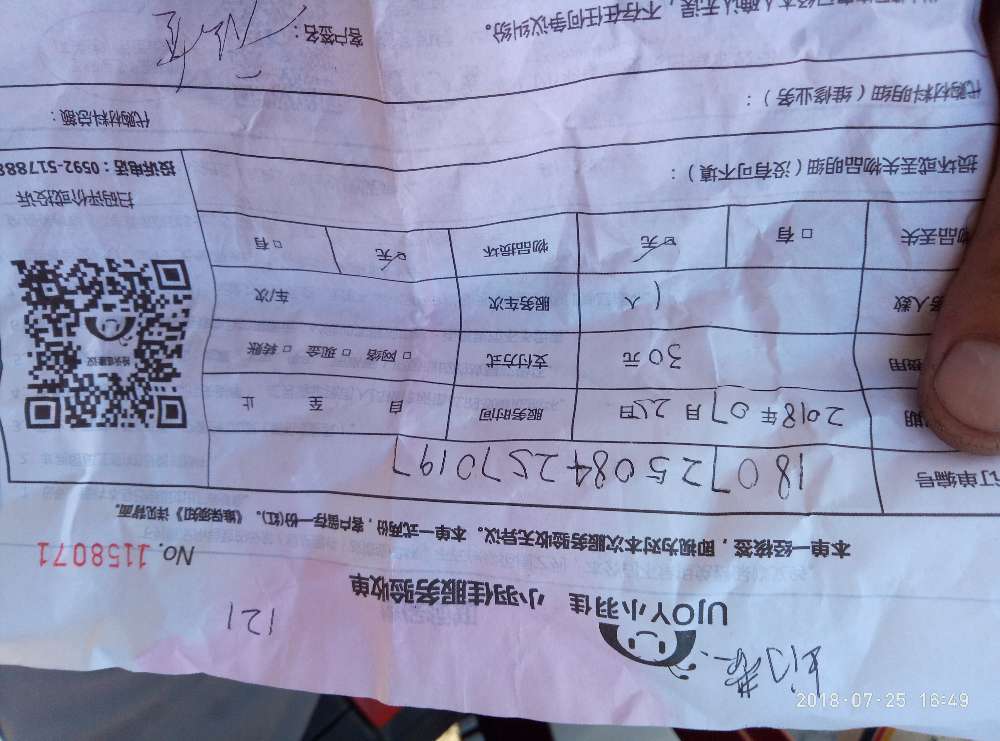 121
UJOY小羽佳 小羽佳服务验收单
No. 1158071
本单一经核签，即视为对本次服务验收无异议。本单一式两份，客户留存一份(红)。《维保须知》详见背面.
订单编号 1807250842570197
期 2018年07月25日 服务时间 自 至 止
费用 30元 支付方式 □ 网络 □ 现金 □ 转账
务人数 1人 服务车次 车/次
物品丢失 □ 有 ☑ 无 物品损坏 ☑ 无 □ 有
扫码评价或投诉
投诉电话：0592-517888
损坏或丢失物品明细（没有可不填）：
代购材料明细（维修业务）：
代购材料总额：
已经本人确认无误，不存在任何争议纠纷。
客户签名：
2018-07-25 16:49